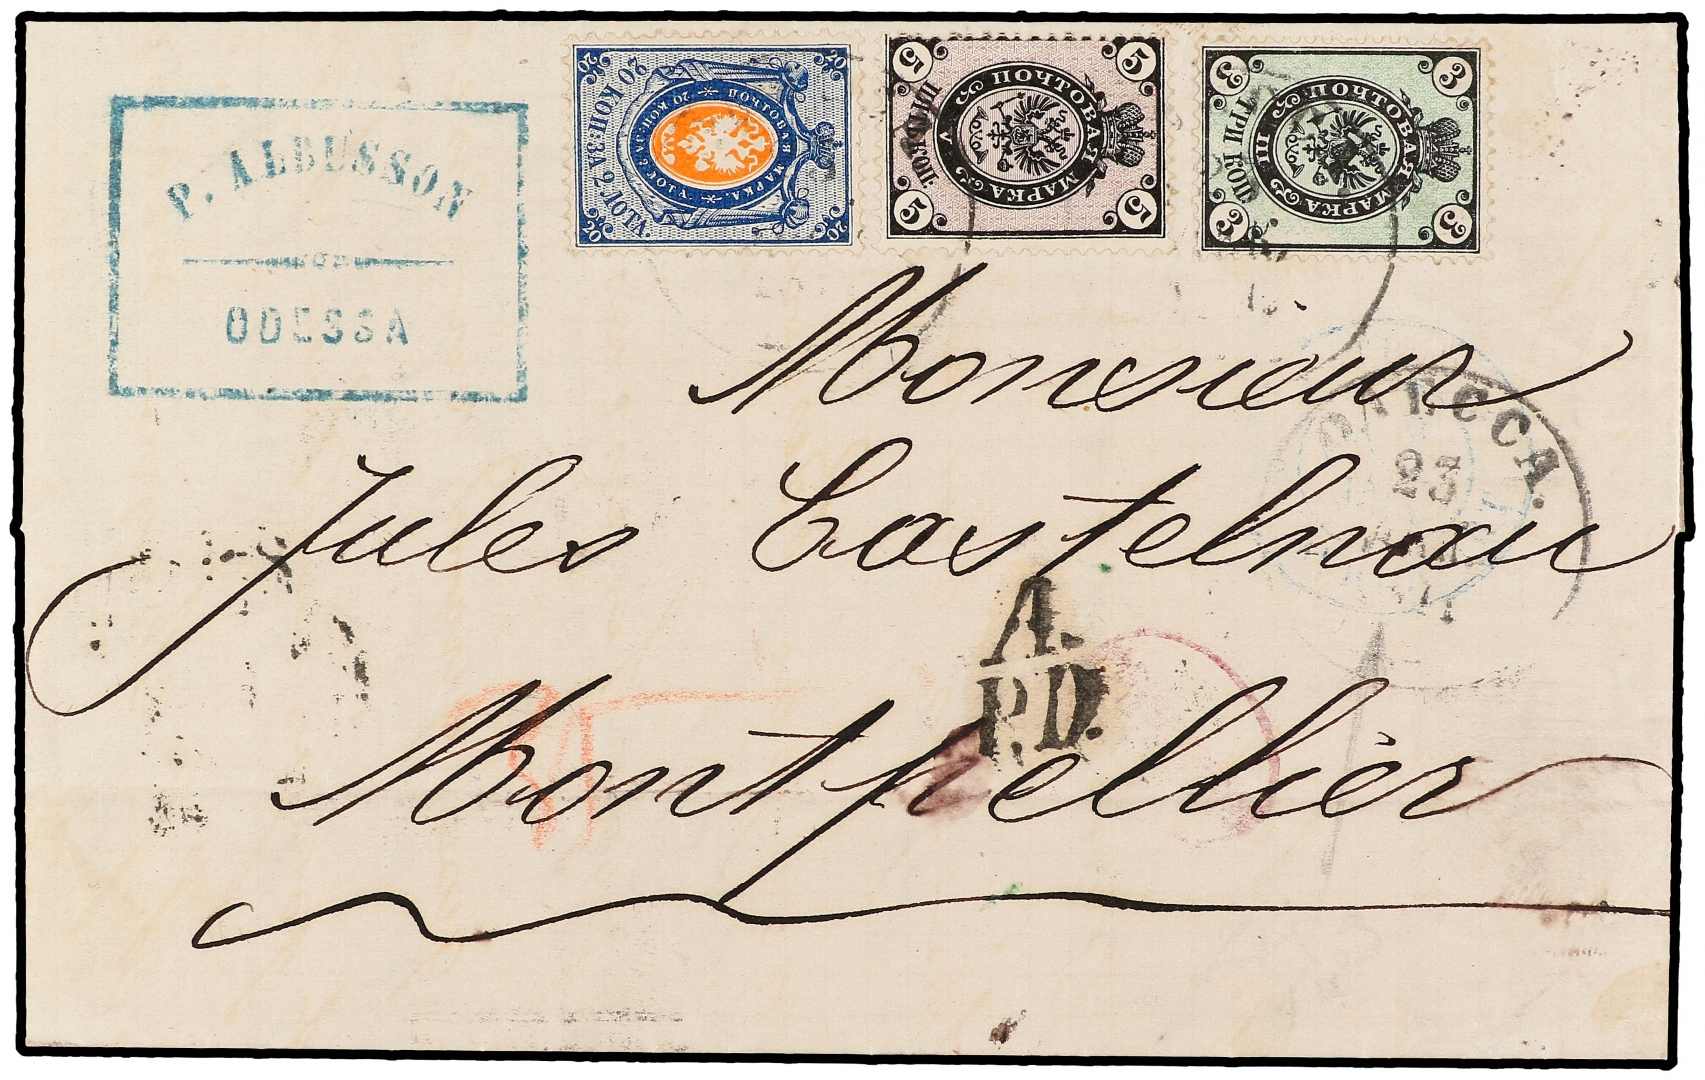 P. ALBUSSON
ODESSA
20 20 20 20
20 КОП: ЗА ЛОТЪ.
ПОЧТОВАЯ МАРКА.
20 КОП: ЗА ЛОТЪ
5 5 5 5
ПЯТЬ КОП.
ПОЧТОВАЯ МАРКА
V
3 3 3 3
ТРИ КОП.
ПОЧТОВАЯ МАРКА
III
Monsieur
ОДЕССА.
23
Jules Castelnau
A.
P.D.
Montpellier